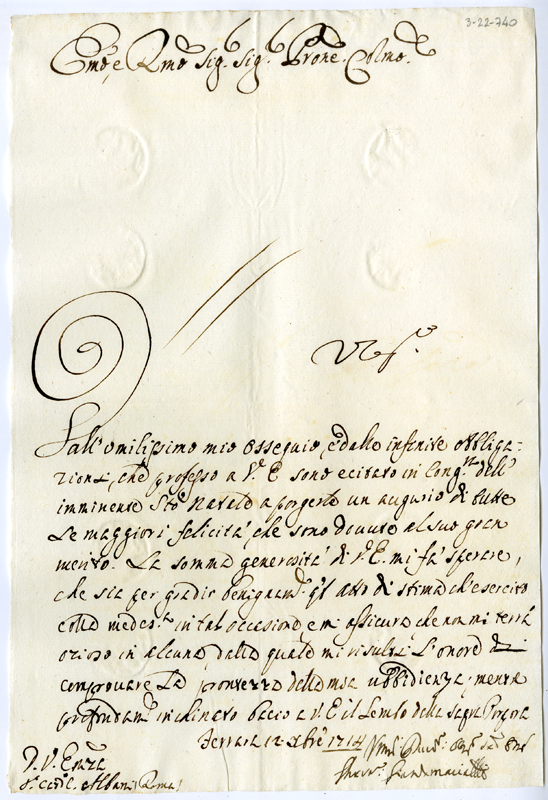 3-22-740
Em̃o, e Rm̃o Sig.r Sig.r Prone. Colmo.
Dall' Umilissimo mio ossequio, e dalle infinite obbliga-
zioni, che professo a V. E sono ecitato in Cong.ra dell'
imminente Sto. Natale a porgerle un augurio di tutte
Le maggiori felicità, che sono dovute al suo gran
merito. La somma generosità di V. E. mi fà sperare,
che sia per gradir benignam.te q.sto atto di stima ch'esercito
colla medes.ma in tal occasione e m'assicura che non mi terrà
ozioso in alcuna, dalla quale mi risulti L'onore di
comprovare La prontezza della mia ubbidienza; mentre
profondam.te inchinato bacio a V. E il Lembo della Sagra Porpora
Ferrara 12 Xbre 1714
D. V. Emza
S.r Card.l Albani (Roma)